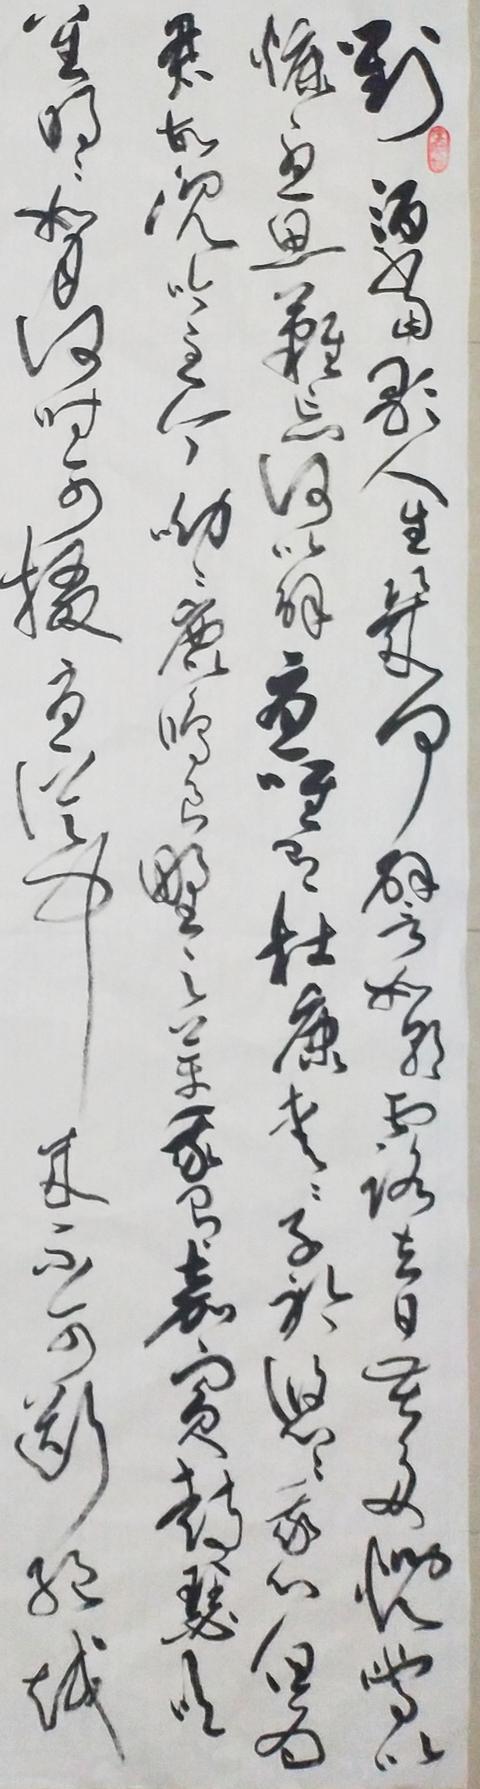 對酒當歌人生幾何譬如朝露去日苦多慨當以
慷憂思難忘何以解憂唯有杜康青々子衿悠々我心但為
君故沉吟至今呦々鹿鳴食野之苹我有嘉賓鼓瑟吹
笙明々如月何時可掇憂從中來不可斷絕越